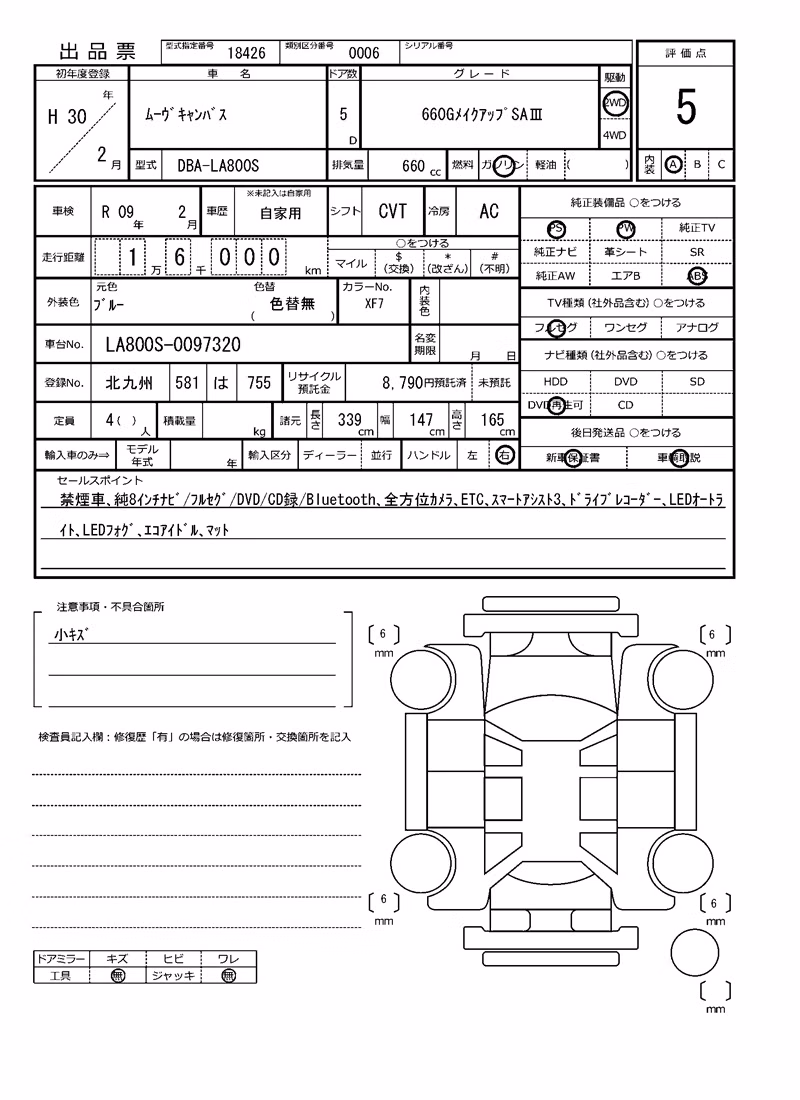 出品票 型式指定番号 18426 類別区分番号 0006 シリアル番号
評価点
初年度登録 車名 ドア数 グレード 駆動
H 30 年 2 月 ムーヴキャンバス 5 D 660GメイクアップSAⅢ 2WD 4WD
5
型式 DBA-LA800S 排気量 660 cc 燃料 ガソリン 軽油 ( )
内装 A B C
車検 R 09 年 2 月 車歴 ※未記入は自家用 自家用 シフト CVT 冷房 AC
純正装備品 ○をつける
PS PW 純正TV
走行距離 1 万 6 千 0 0 0 km ○をつける マイル $ (交換) * (改ざん) # (不明)
純正ナビ 革シート SR
純正AW エアB ABS
外装色 元色 ブルー 色替 ( 色替無 ) カラーNo. XF7 内装色
TV種類(社外品含む)○をつける
フルセグ ワンセグ アナログ
車台No. LA800S-0097320 名変期限 月 日
ナビ種類(社外品含む)○をつける
登録No. 北九州 581 は 755 リサイクル預託金 8,790円預託済 未預託
HDD DVD SD
DVD再生可 CD
定員 4( ) 人 積載量 kg 諸元 長さ 339 cm 幅 147 cm 高さ 165 cm
後日発送品 ○をつける
輸入車のみ⇒ モデル年式 年 輸入区分 ディーラー 並行 ハンドル 左 右
新車保証書 車輌取説
セールスポイント
禁煙車、純8インチナビ/フルセグ/DVD/CD録/Bluetooth、全方位カメラ、ETC、スマートアシスト3、ドライブレコーダー、LEDオートラ
イト、LEDフォグ、エコアイドル、マット
注意事項・不具合箇所
小キズ
( 6 ) mm
( 6 ) mm
検査員記入欄：修復歴「有」の場合は修復箇所・交換箇所を記入
( 6 ) mm
( 6 ) mm
ドアミラー キズ ヒビ ワレ
工具 無 ジャッキ 無
( ) mm